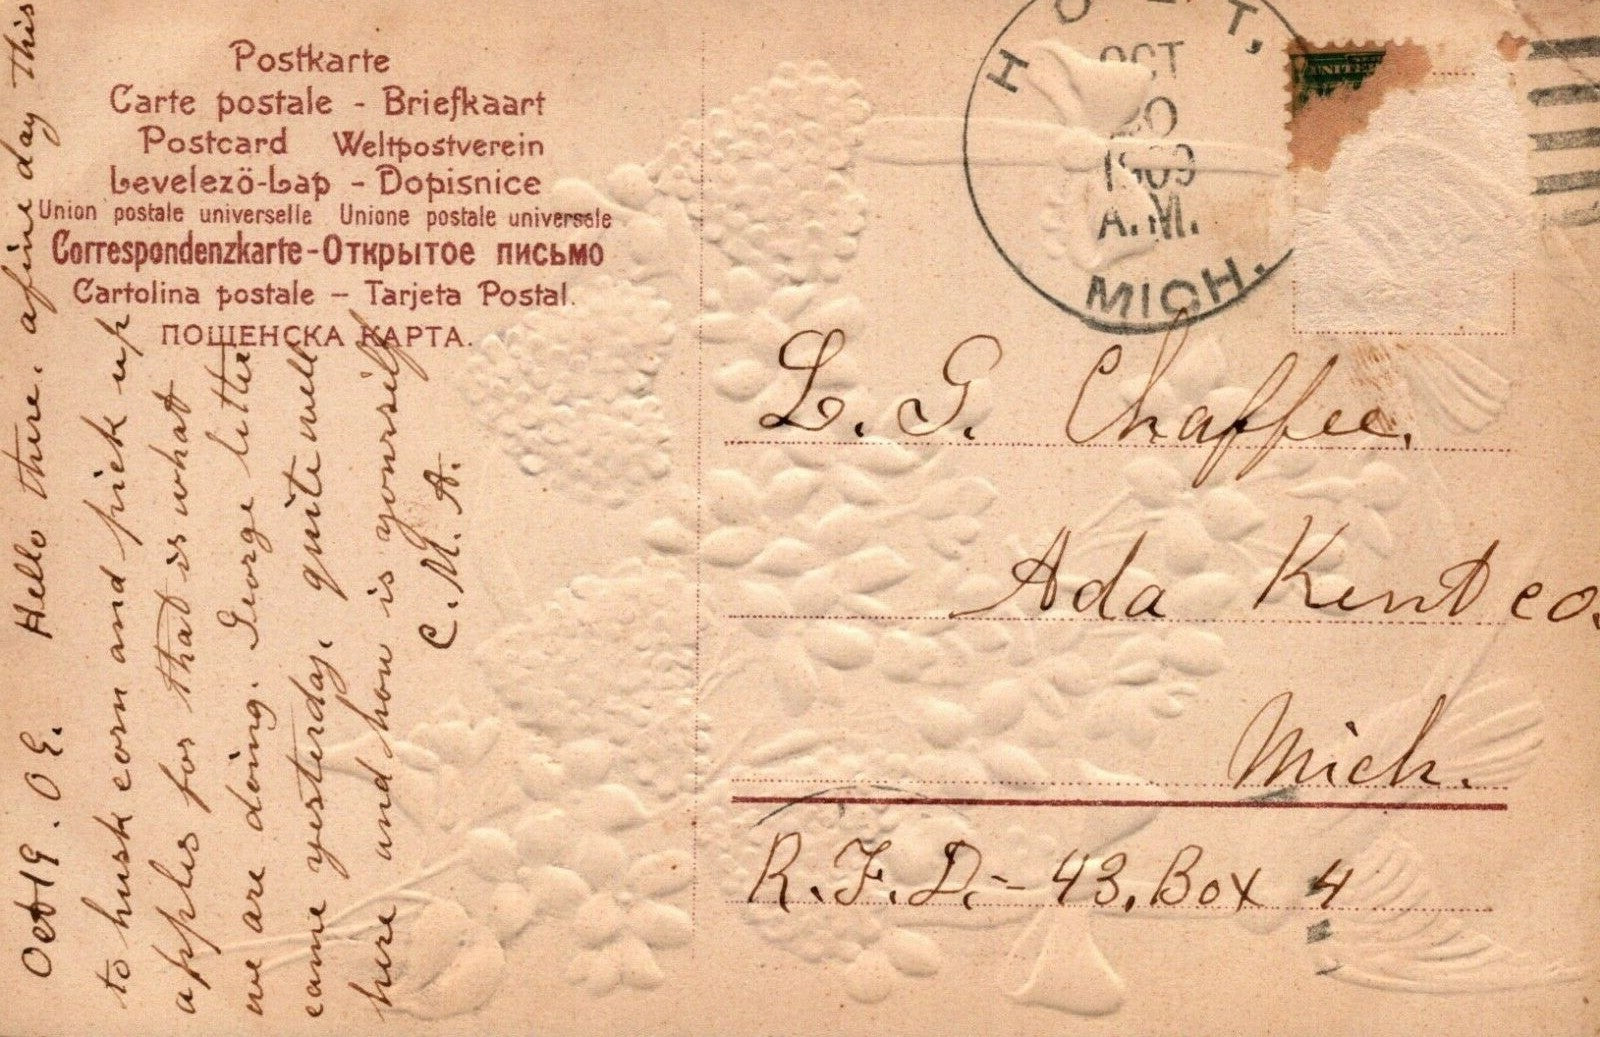 Postkarte
Carte postale - Briefkaart
Postcard Weltpostverein
Levelező-Lap - Dopisnice
Union postale universelle Unione postale universale
Correspondenzkarte - Открытое письмо
Cartolina postale - Tarjeta Postal.
ПОШЕНСКА КАРТА.
HOLT,
OCT
20
1909
A.M.
MICH.
L. G. Chaffee.
Ada Kent co.
Mich.
R.F.D. - 43, Box 4
Oct 19. 09. Hello there. a fine day This
to husk corn and pick up
apples for that is what
we are doing. George letter
came yesterday. quite well
here and how is yourself
C. M. A.